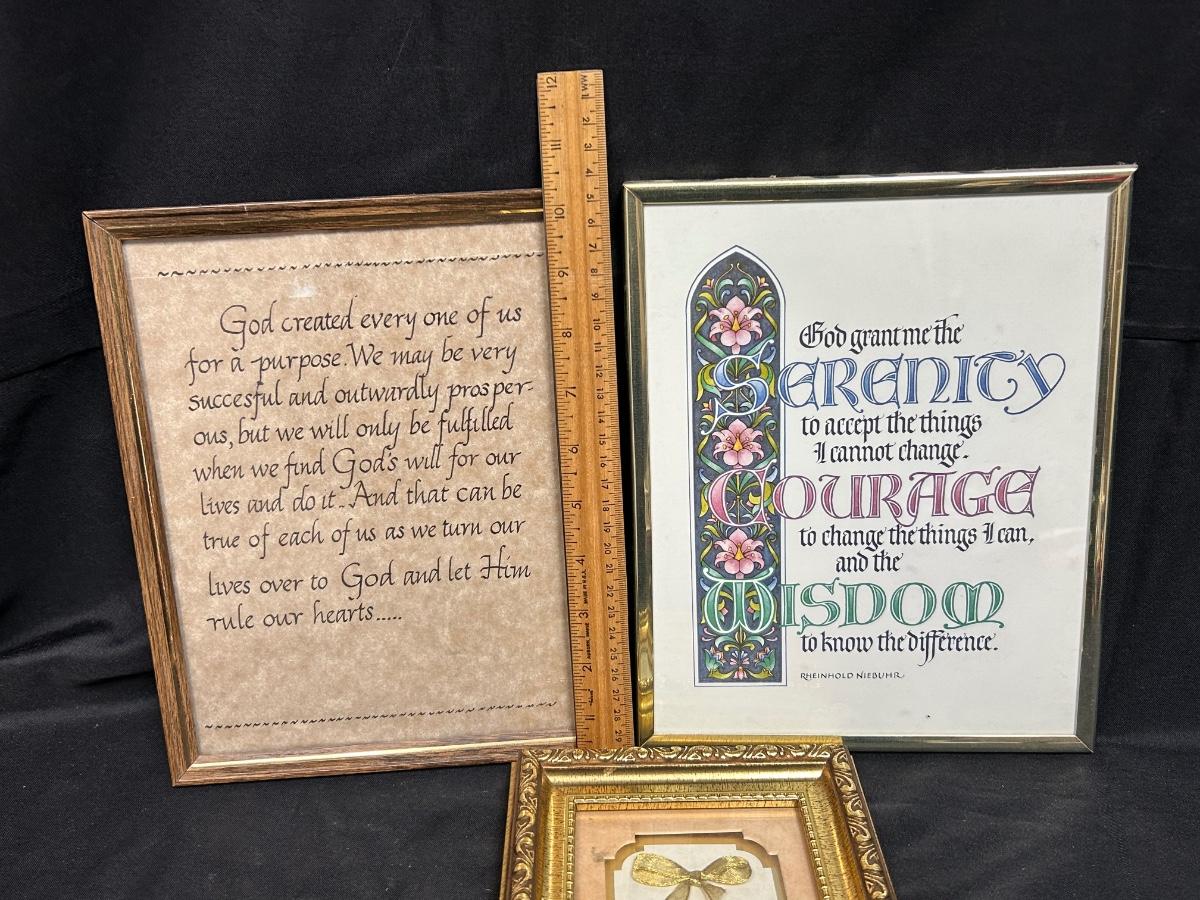 God created every one of us
for a purpose. We may be very
succesful and outwardly prosper-
ous, but we will only be fulfilled
when we find God's will for our
lives and do it.. And that can be
true of each of us as we turn our
lives over to God and let Him
rule our hearts.....
God grant me the
SERENITY
to accept the things
I cannot change.
COURAGE
to change the things I can,
and the
WISDOM
to know the difference.
RHEINHOLD NIEBUHR
12
11
10
9
8
7
6
5
4
3
2
1
1
2
3
4
5
6
7
8
9
10
11
12
13
14
15
16
17
18
19
20
21
22
23
24
25
26
27
28
29